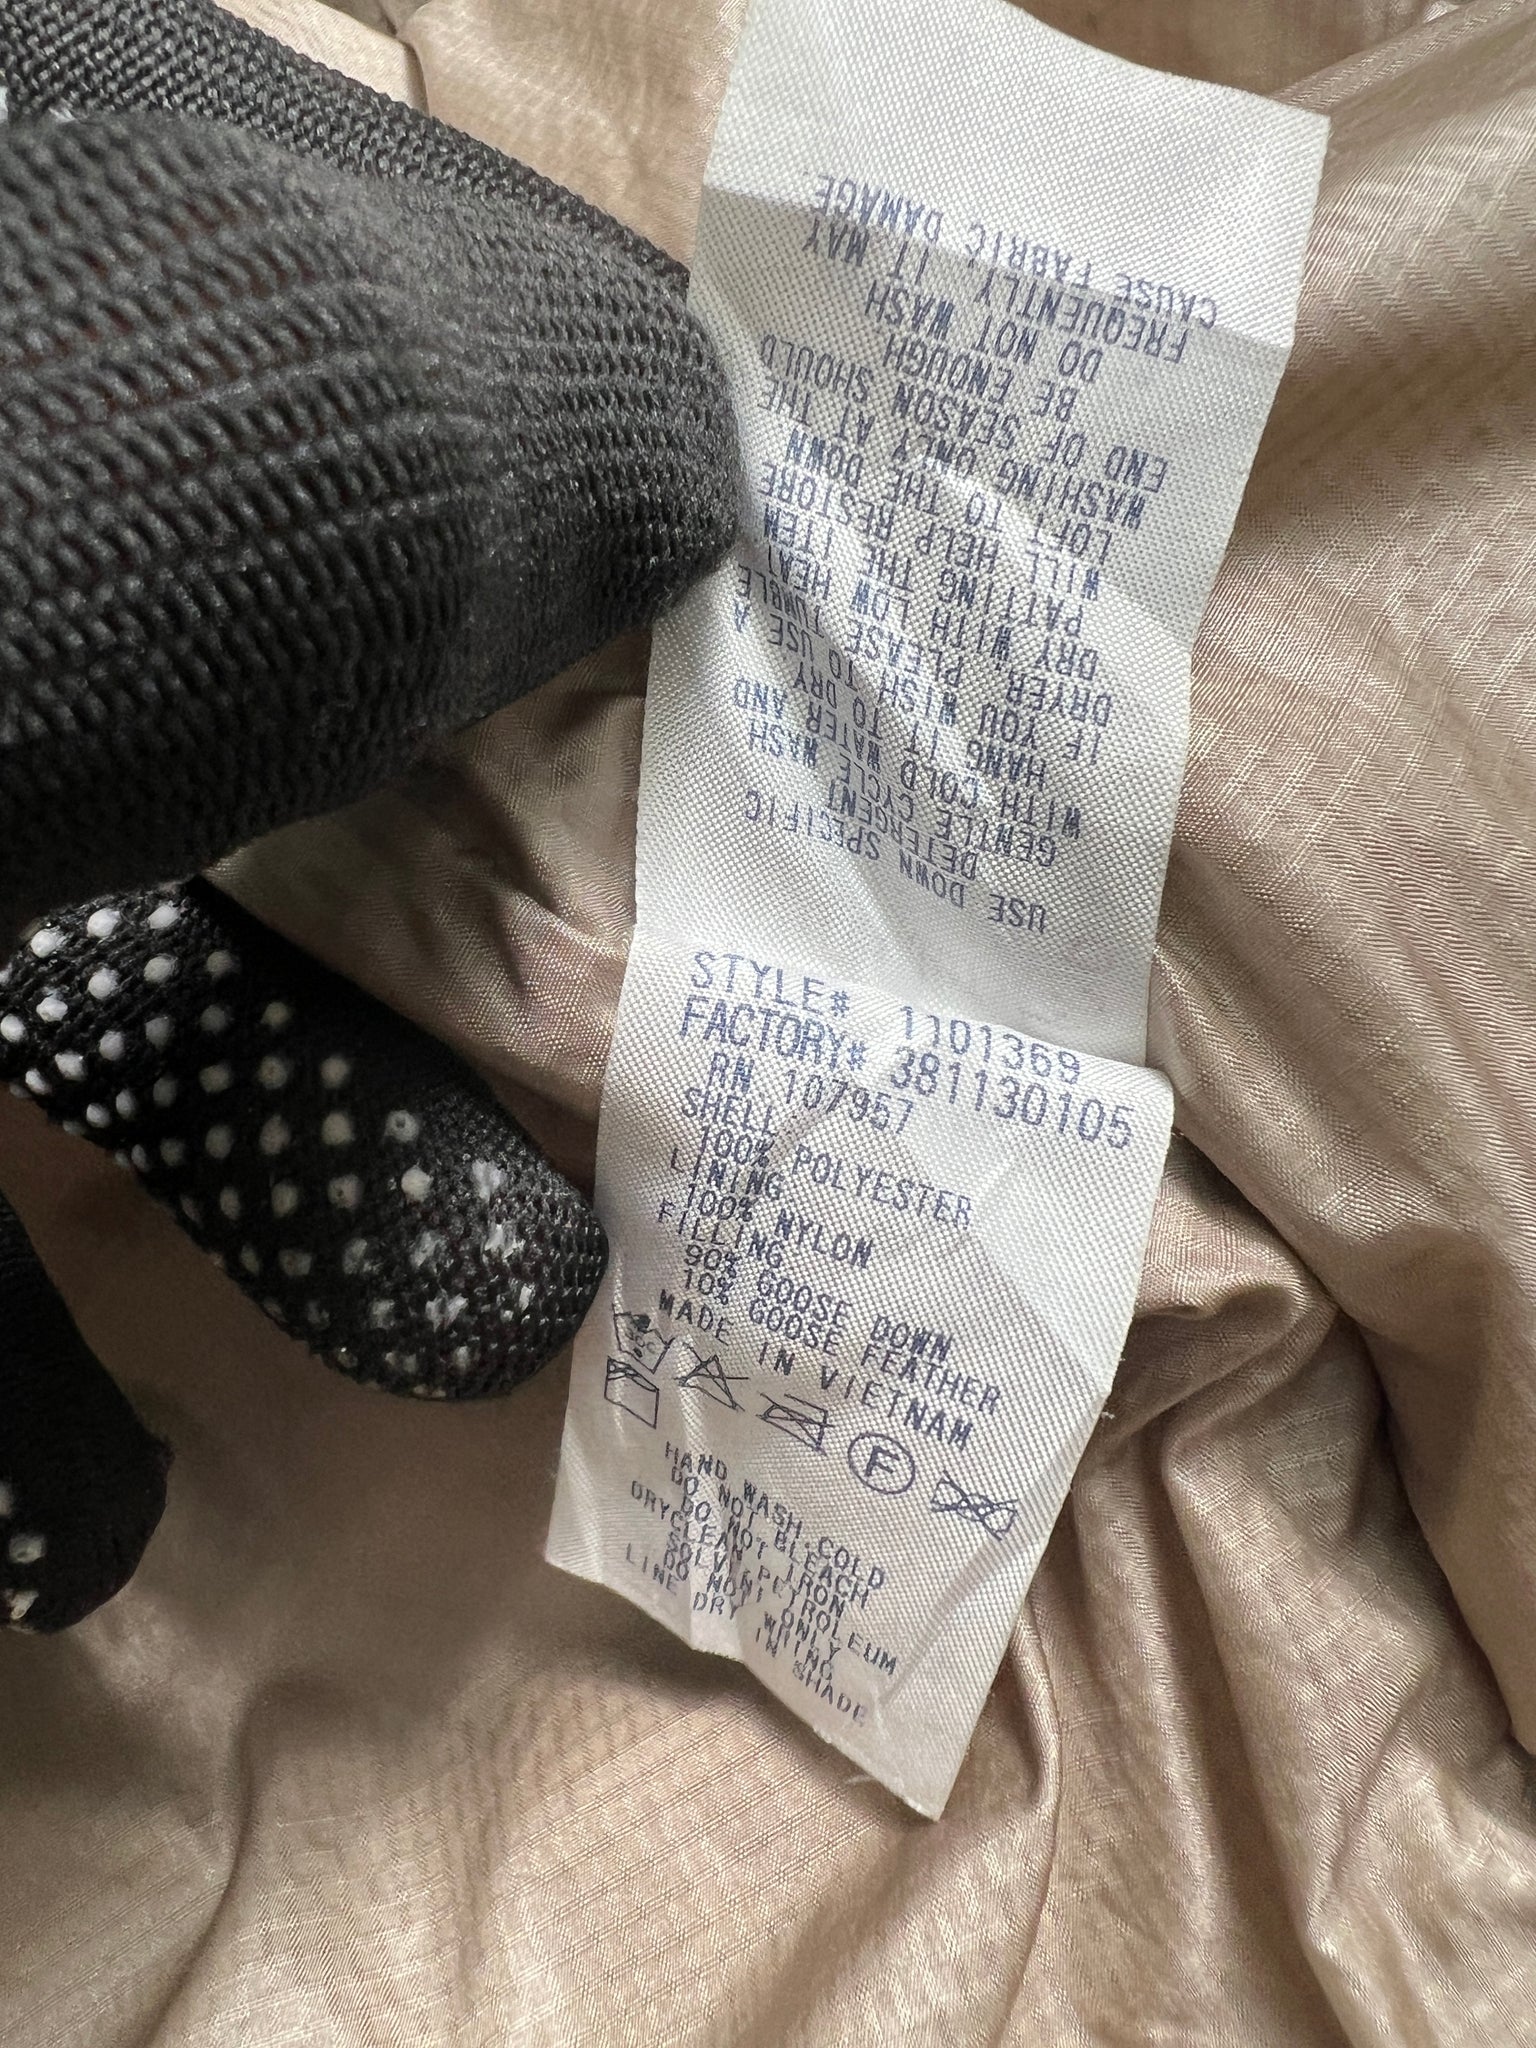 STYLE# 1101369
FACTORY# 381130105
RN 107957
SHELL
100% POLYESTER
LINING
100% NYLON
FILLING
90% GOOSE DOWN
10% GOOSE FEATHER
MADE IN VIETNAM
F
HAND WASH COLD
DO NOT BLEACH
DO NOT IRON
DRYCLEAN PETROLEUM
SOLVENT ONLY
DO NOT WRING
LINE DRY IN SHADE
USE DOWN SPECIFIC
DETERGENT
GENTLE CYCLE WASH
WITH COLD WATER AND
HANG IT TO DRY
IF YOU WISH TO USE A
DRYER PLEASE TUMBLE
DRY WITH LOW HEAT
PATTING THE ITEM
WILL HELP RESTORE
LOFT TO THE DOWN
WASHING ONLY AT THE
END OF SEASON SHOULD
BE ENOUGH
DO NOT WASH
FREQUENTLY IT MAY
CAUSE FABRIC DAMAGE